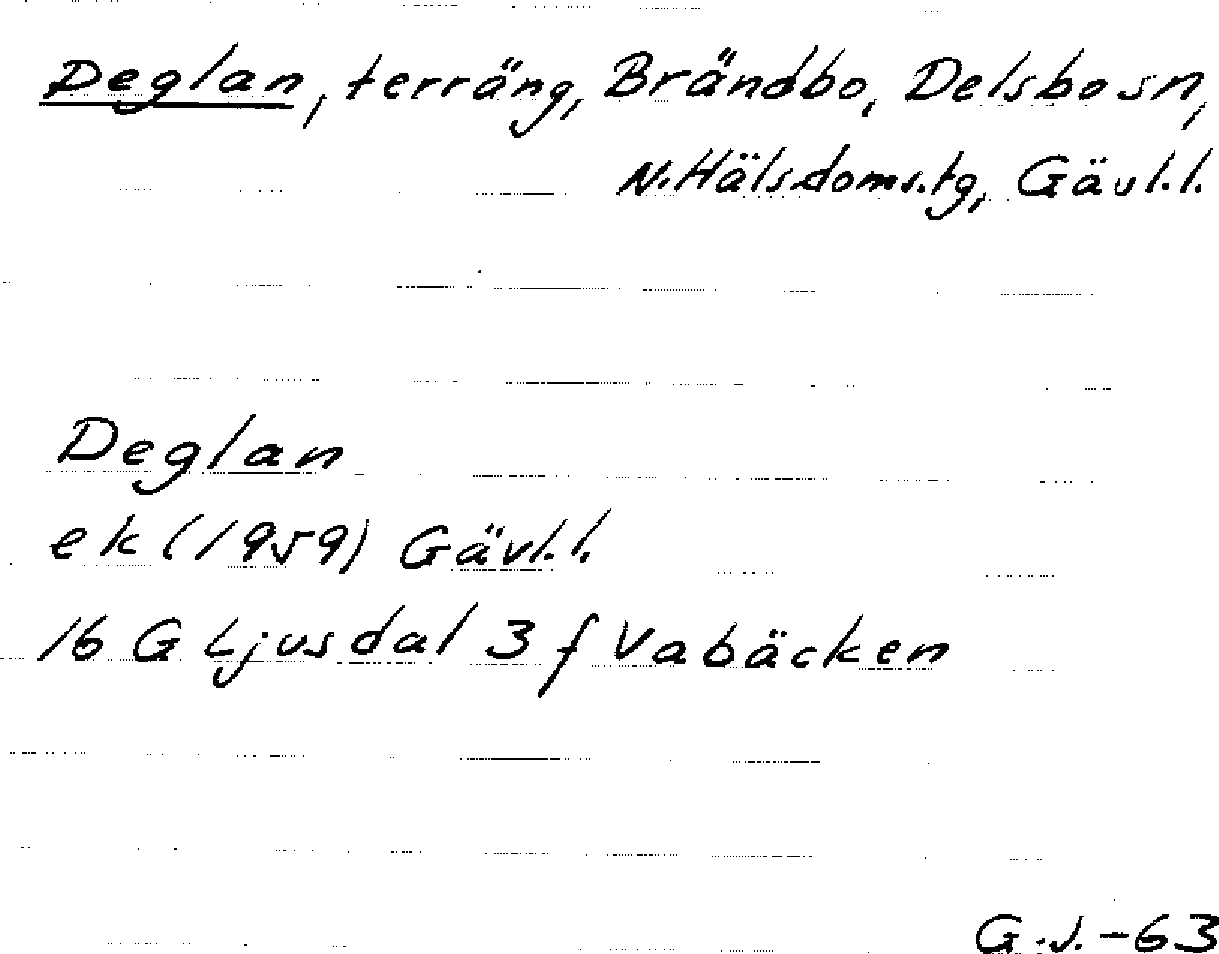 Deglan, terräng, Brändbo, Delsbo sn,
N. Häls. doms. tg, Gävl. l.
Deglan
ek (1959) Gävl. l.
16 G Ljusdal 3 f Vabäcken
G. J. -63